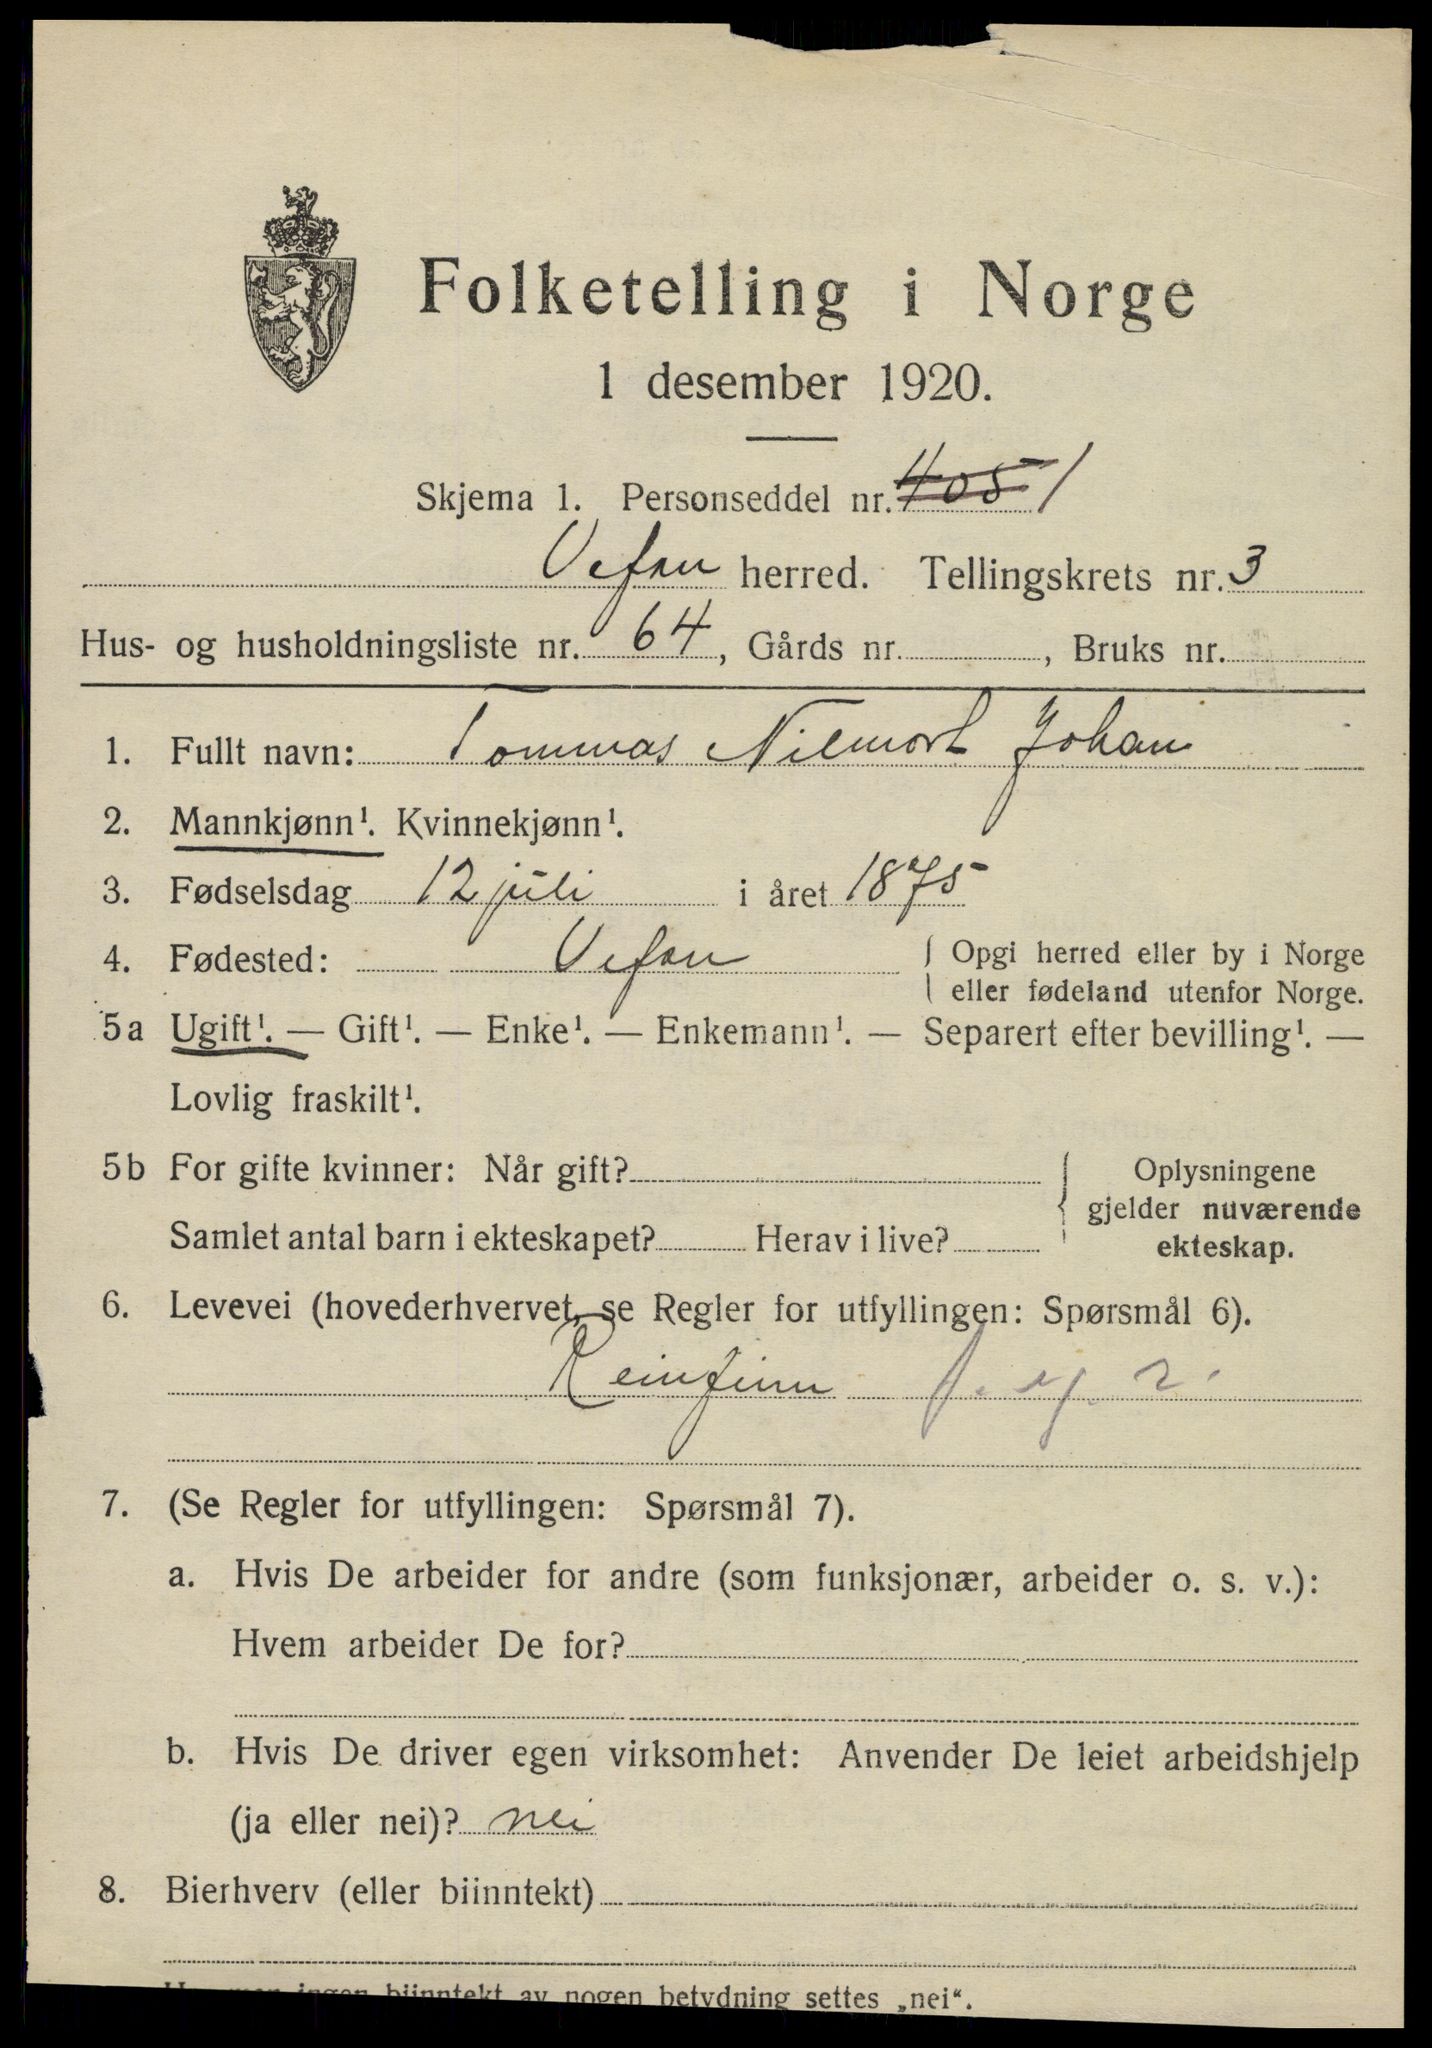 Folketelling i Norge
1 desember 1920.
Skjema 1. Personseddel nr. 405 1
Vefsn herred. Tellingskrets nr. 3
Hus- og husholdningsliste nr. 64, Gårds nr. , Bruks nr.
1. Fullt navn: Tommas Nilmort Johan
2. Mannkjønn¹. Kvinnekjønn¹.
3. Fødselsdag 12 juli i året 1875
4. Fødested: Vefsn { Opgi herred eller by i Norge
eller fødeland utenfor Norge.
5a Ugift¹. — Gift¹. — Enke¹. — Enkemann¹. — Separert efter bevilling¹. —
Lovlig fraskilt¹.
5b For gifte kvinner: Når gift? { Oplysningene
gjelder nuværende
Samlet antal barn i ekteskapet? Herav i live? ekteskap.
6. Levevei (hovederhvervet, se Regler for utfyllingen: Spørsmål 6).
Reinfinn
7. (Se Regler for utfyllingen: Spørsmål 7).
a. Hvis De arbeider for andre (som funksjonær, arbeider o. s. v.):
Hvem arbeider De for?
b. Hvis De driver egen virksomhet: Anvender De leiet arbeidshjelp
(ja eller nei)? nei
8. Bierhverv (eller biinntekt)
Har man ingen biinntekt av nogen betydning settes „nei“.